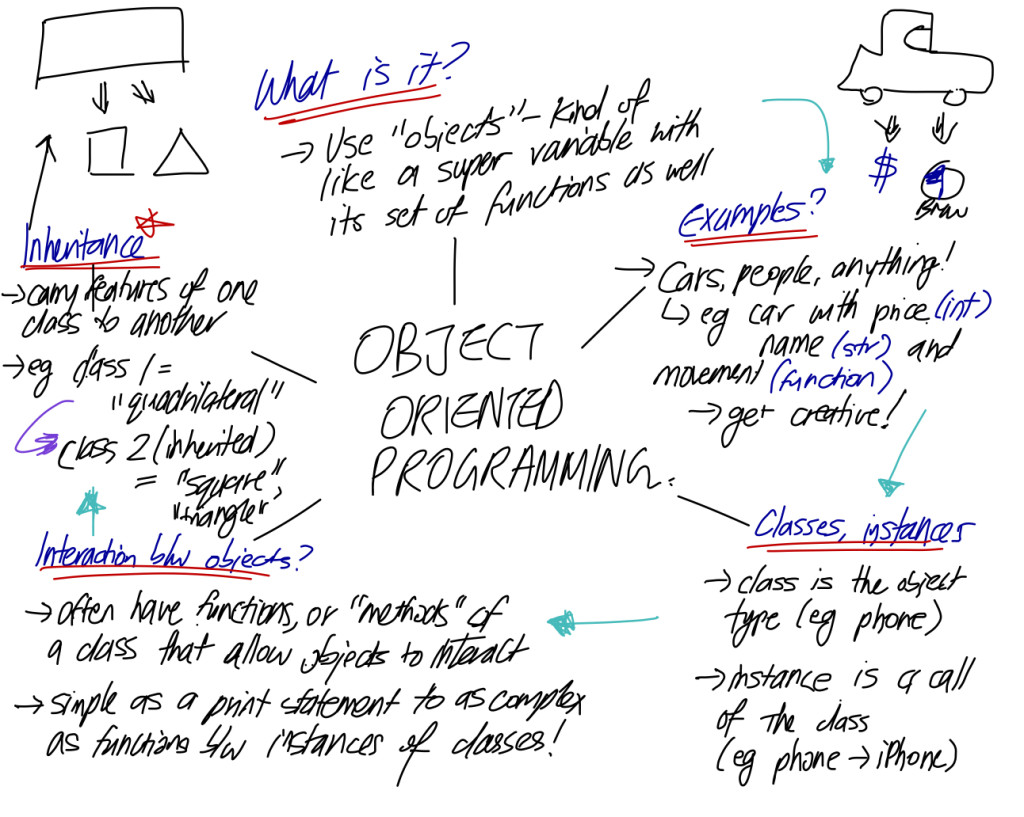 What is it?
→ Use "objects" - kind of
like a super variable with
its set of functions as well
$
Examples?
→ Cars, people, anything!
↳ eg car with price (int)
name (str) and
movement (function)
→ get creative!
Inheritance
→ carry features of one
class to another
→ eg class 1 =
"quadrilateral"
class 2 (inherited)
= "square"
"triangle"
OBJECT
ORIENTED
PROGRAMMING.
Classes, instances
→ class is the object
type (eg phone)
→ instance is a call
of the class
(eg phone → iPhone)
Interaction b/w objects?
→ often have functions, or "methods" of
a class that allow objects to interact
→ simple as a print statement to as complex
as functions b/w instances of classes!